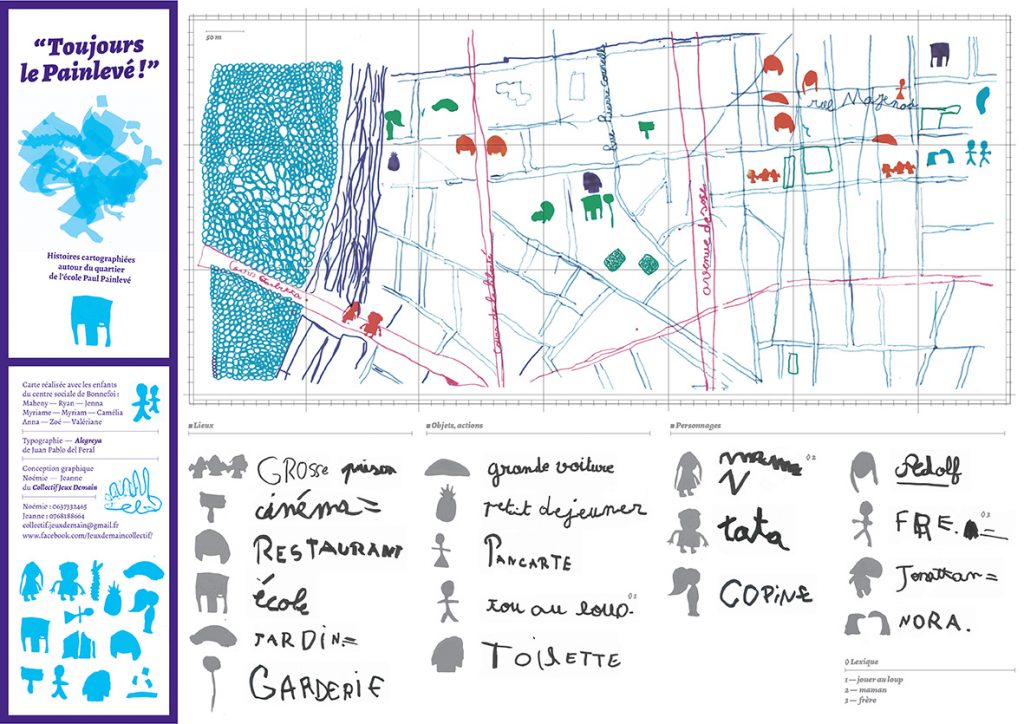 “Toujours
le Painlevé !”
Histoires cartographiées
autour du quartier
de l'école Paul Painlevé
Carte réalisée avec les enfants
du centre sociale de Bonnefoi :
Maheny — Ryan — Jenna
Myriame — Myriam — Camélia
Anna — Zoé — Valériane
Typographie — Alegreya
de Juan Pablo del Peral
Conception graphique
Noémie — Jeanne
du Collectif Jeux Demain
Noémie : 0637332465
Jeanne : 0768188664
collectif.jeuxdemain@gmail.fr
www.facebook.com/Jeuxdemaincollectif/
50 m
rue Pierre Corneille
rue Mazenod
cours Gambetta
cours de la liberté
avenue de saxe
Lieux
GROSSE prison
cinéma =
RESTAURANT
école
JARDIN =
GARDERIE
Objets, actions
grande voiture
petit dejeuner
PANCARTE
rou au loup. ◊1
TOILETTE
Personnages
mama ◊2
tata
COPINE
Adolf
FRE. ◊3
Jonathan =
NORA.
◊ Lexique
1 — jouer au loup
2 — maman
3 — frère